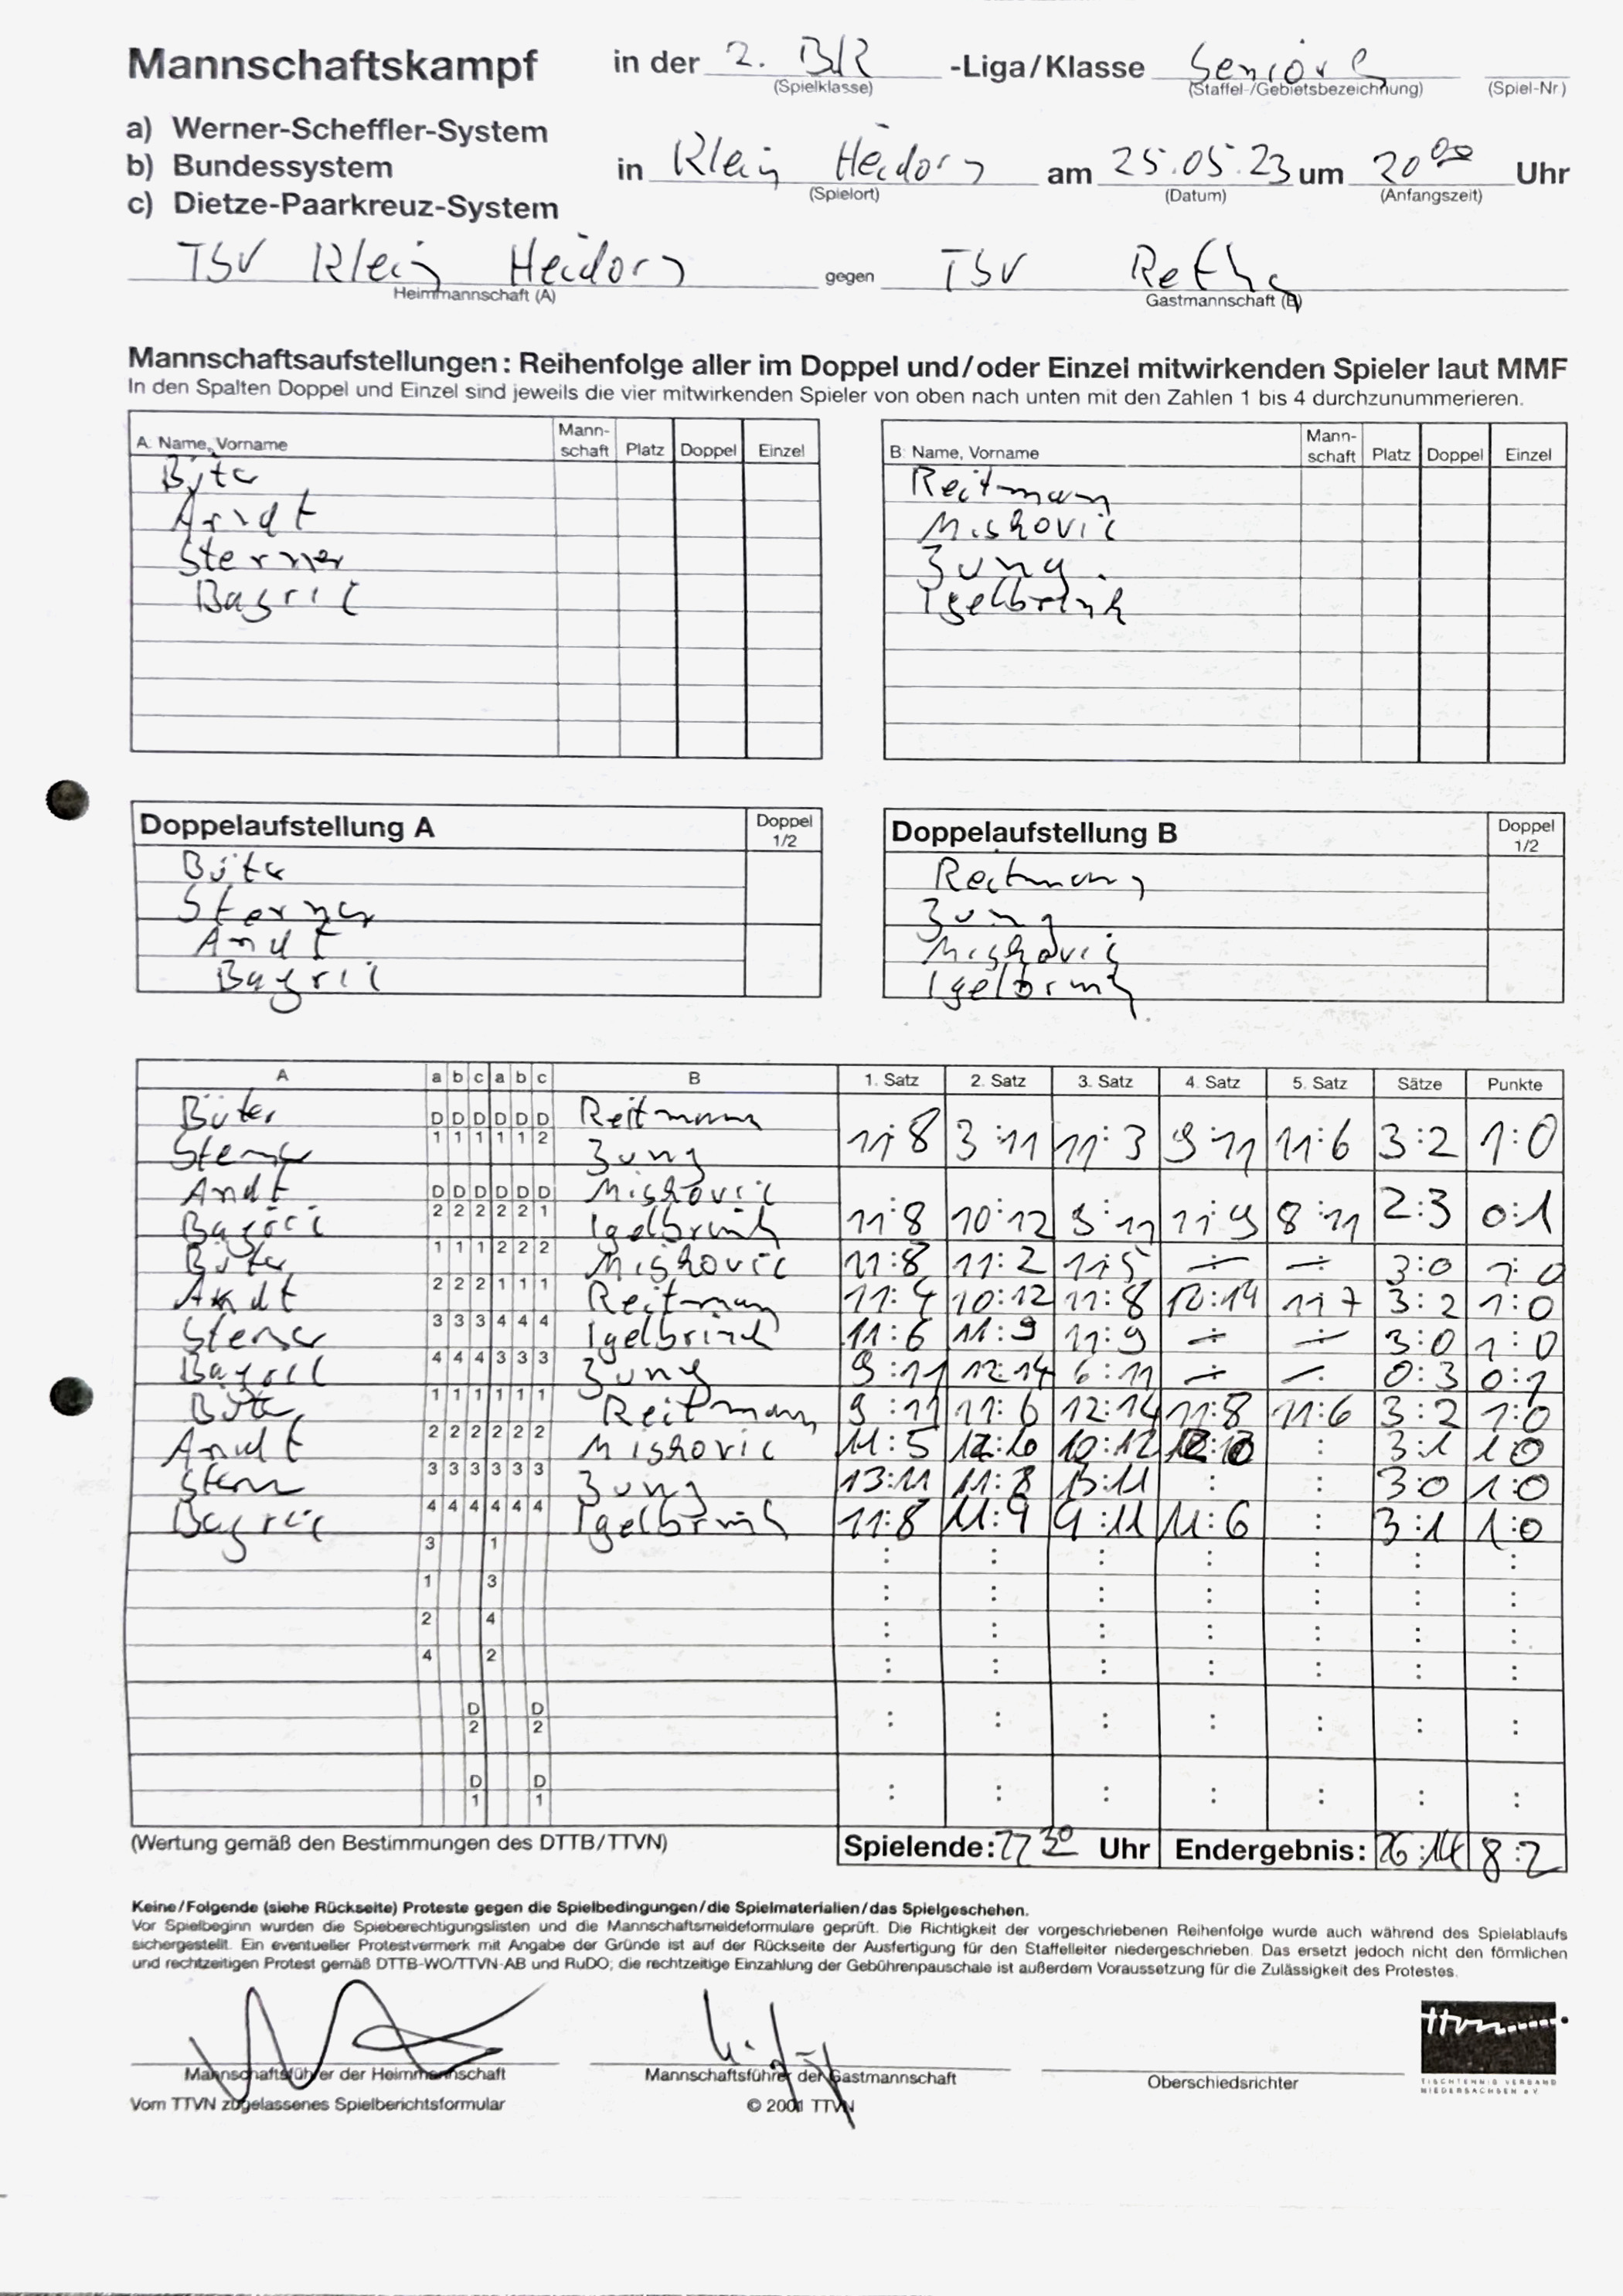 Mannschaftskampf in der 2. BR -Liga/Klasse Senioren
(Spielklasse) (Staffel-/Gebietsbezeichnung) (Spiel-Nr)
a) Werner-Scheffler-System
b) Bundessystem in Klein Heidorn am 25.05.23 um 20 00 Uhr
(Spielort) (Datum) (Anfangszeit)
c) Dietze-Paarkreuz-System
TSV Klein Heidorn gegen TSV
Heimmannschaft (A) Gastmannschaft (B)
Mannschaftsaufstellungen: Reihenfolge aller im Doppel und/oder Einzel mitwirkenden Spieler laut MMF
In den Spalten Doppel und Einzel sind jeweils die vier mitwirkenden Spieler von oben nach unten mit den Zahlen 1 bis 4 durchzunummerieren.
A: Name, Vorname Mann-schaft Platz Doppel Einzel B: Name, Vorname Mann-schaft Platz Doppel Einzel
Büter Reitmann
Arndt Miskovic
Sterner Jung
Bagric Igelbrink
Doppelaufstellung A Doppel 1/2 Doppelaufstellung B Doppel 1/2
Büter Reitmann
Sterner Jung
Arndt Miskovic
Bagric Igelbrink
A a b c a b c B 1. Satz 2. Satz 3. Satz 4. Satz 5. Satz Sätze Punkte
Büter D D D D D D Reitmann
Sterner 1 1 1 1 1 2 Jung 11:8 3:11 11:3 9:11 11:6 3:2 1:0
Arndt D D D D D D Miskovic
Bagric 2 2 2 2 2 1 Igelbrink 11:8 10:12 9:11 11:9 8:11 2:3 0:1
Büter 1 1 1 2 2 2 Miskovic 11:8 11:2 11:5 ÷ ÷ 3:0 1:0
Arndt 2 2 2 1 1 1 Reitmann 11:4 10:12 11:8 12:14 11:7 3:2 1:0
Sterner 3 3 3 4 4 4 Igelbrink 11:6 11:9 11:9 ÷ ÷ 3:0 1:0
Bagric 4 4 4 3 3 3 Jung 9:11 12:14 6:11 ÷ ÷ 0:3 0:1
Büter 1 1 1 1 1 1 Reitmann 9:11 11:6 12:14 11:8 11:6 3:2 1:0
Arndt 2 2 2 2 2 2 Miskovic 11:5 12:10 10:12 12:10 : 3:1 1:0
Sterner 3 3 3 3 3 3 Jung 13:11 11:8 13:11 : : 3:0 1:0
Bagric 4 4 4 4 4 4 Igelbrink 11:8 11:9 9:11 11:6 : 3:1 1:0
3 1 : : : : : : :
1 3 : : : : : : :
2 4 : : : : : : :
4 2 : : : : : : :
D D
2 2 : : : : : : :
D D
1 1 : : : : : : :
(Wertung gemäß den Bestimmungen des DTTB/TTVN) Spielende: 22 30 Uhr Endergebnis: 26:14 8:2
Keine/Folgende (siehe Rückseite) Proteste gegen die Spielbedingungen/die Spielmaterialien/das Spielgeschehen.
Vor Spielbeginn wurden die Spieberechtigungslisten und die Mannschaftsmeldeformulare geprüft. Die Richtigkeit der vorgeschriebenen Reihenfolge wurde auch während des Spielablaufs
sichergestellt. Ein eventueller Protestvermerk mit Angabe der Gründe ist auf der Rückseite der Ausfertigung für den Staffelleiter niedergeschrieben. Das ersetzt jedoch nicht den förmlichen
und rechtzeitigen Protest gemäß DTTB-WO/TTVN-AB und RuDO; die rechtzeitige Einzahlung der Gebührenpauschale ist außerdem Voraussetzung für die Zulässigkeit des Protestes.
ttvn
Mannschaftsführer der Heimmannschaft Mannschaftsführer der Gastmannschaft Oberschiedsrichter
TISCHTENNIS VERBAND
NIEDERSACHSEN e.V.
Vom TTVN zugelassenes Spielberichtsformular © 2001 TTVN